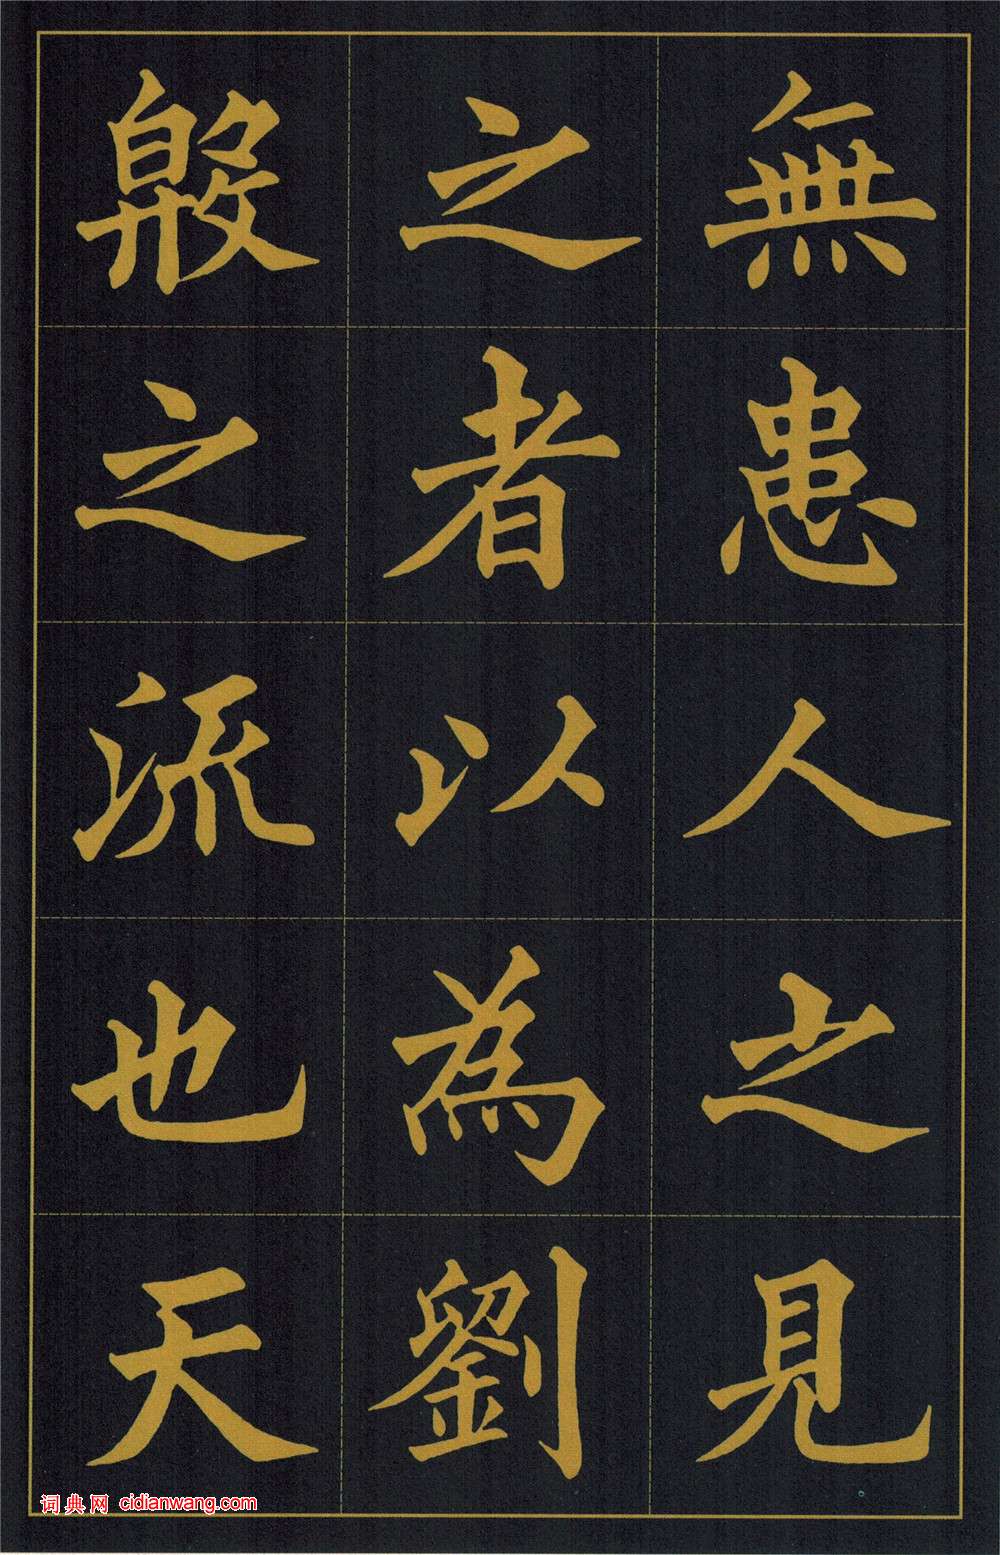 無患人之見
之者以爲劉
殷之流也天
词典网 cidianwang.com